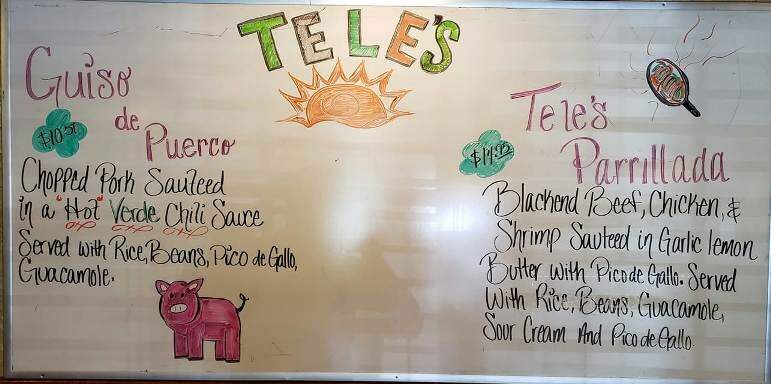 TELE'S
Guiso
de
Puerco
Chopped Pork Sauteed
in a "Hot" Verde Chili Sauce
Served with Rice, Beans, Pico de Gallo,
Guacamole.
Tele's
Parrillada
$14.95
Blackend Beef, Chicken, &
Shrimp Sauteed in Garlic lemon
Butter with Pico de Gallo. Served
With Rice, Beans, Guacamole,
Sour Cream And Pico de Gallo.